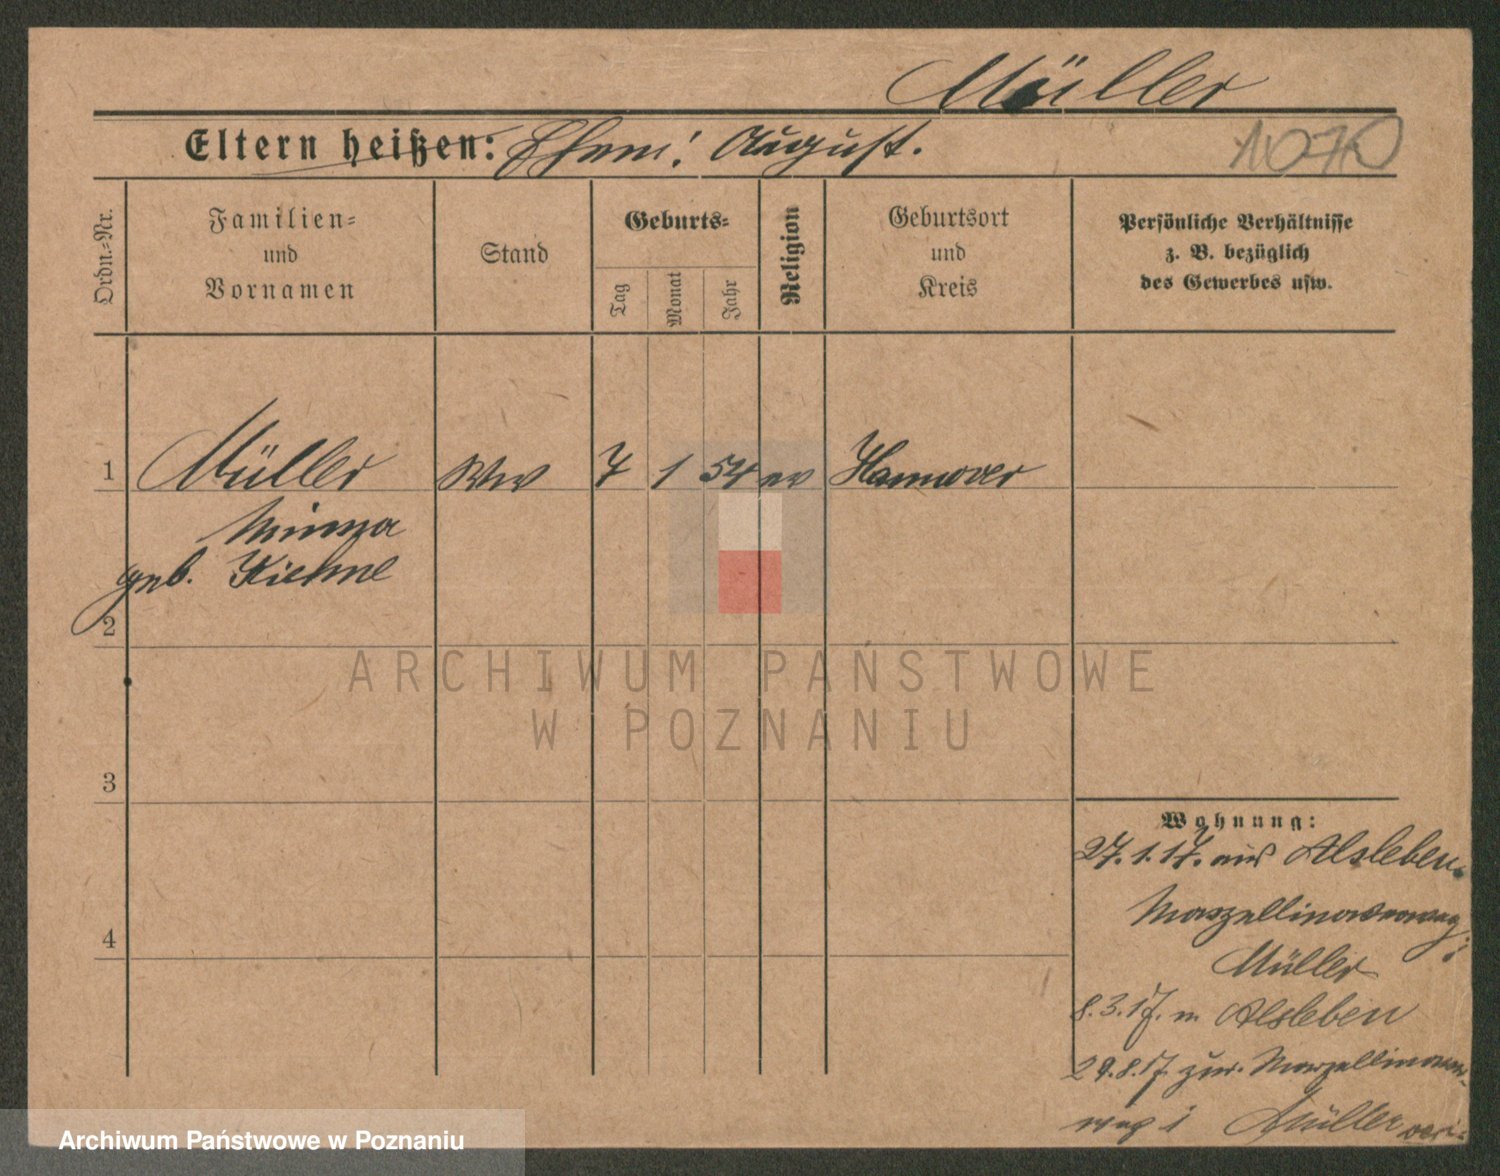 Müller
Eltern heißen: Ehem: August.
1070
Ordn.-Nr.
Familien-
und
Vornamen
Stand
Geburts-
Tag
Monat
Jahr
Religion
Geburtsort
und
Kreis
Persönliche Verhältnisse
z. B. bezüglich
des Gewerbes usw.
1 Müller Ww 7 1 54 ev Hannover
Minna
geb. Kiehne
2
3
4
Wohnung:
27.1.17. aus Alsleben.
Müller
8.3.17. n. Alsleben
29.8.17 zur.
weg 1 Müller
ARCHIWUM PAŃSTWOWE
W POZNANIU
Archiwum Państwowe w Poznaniu